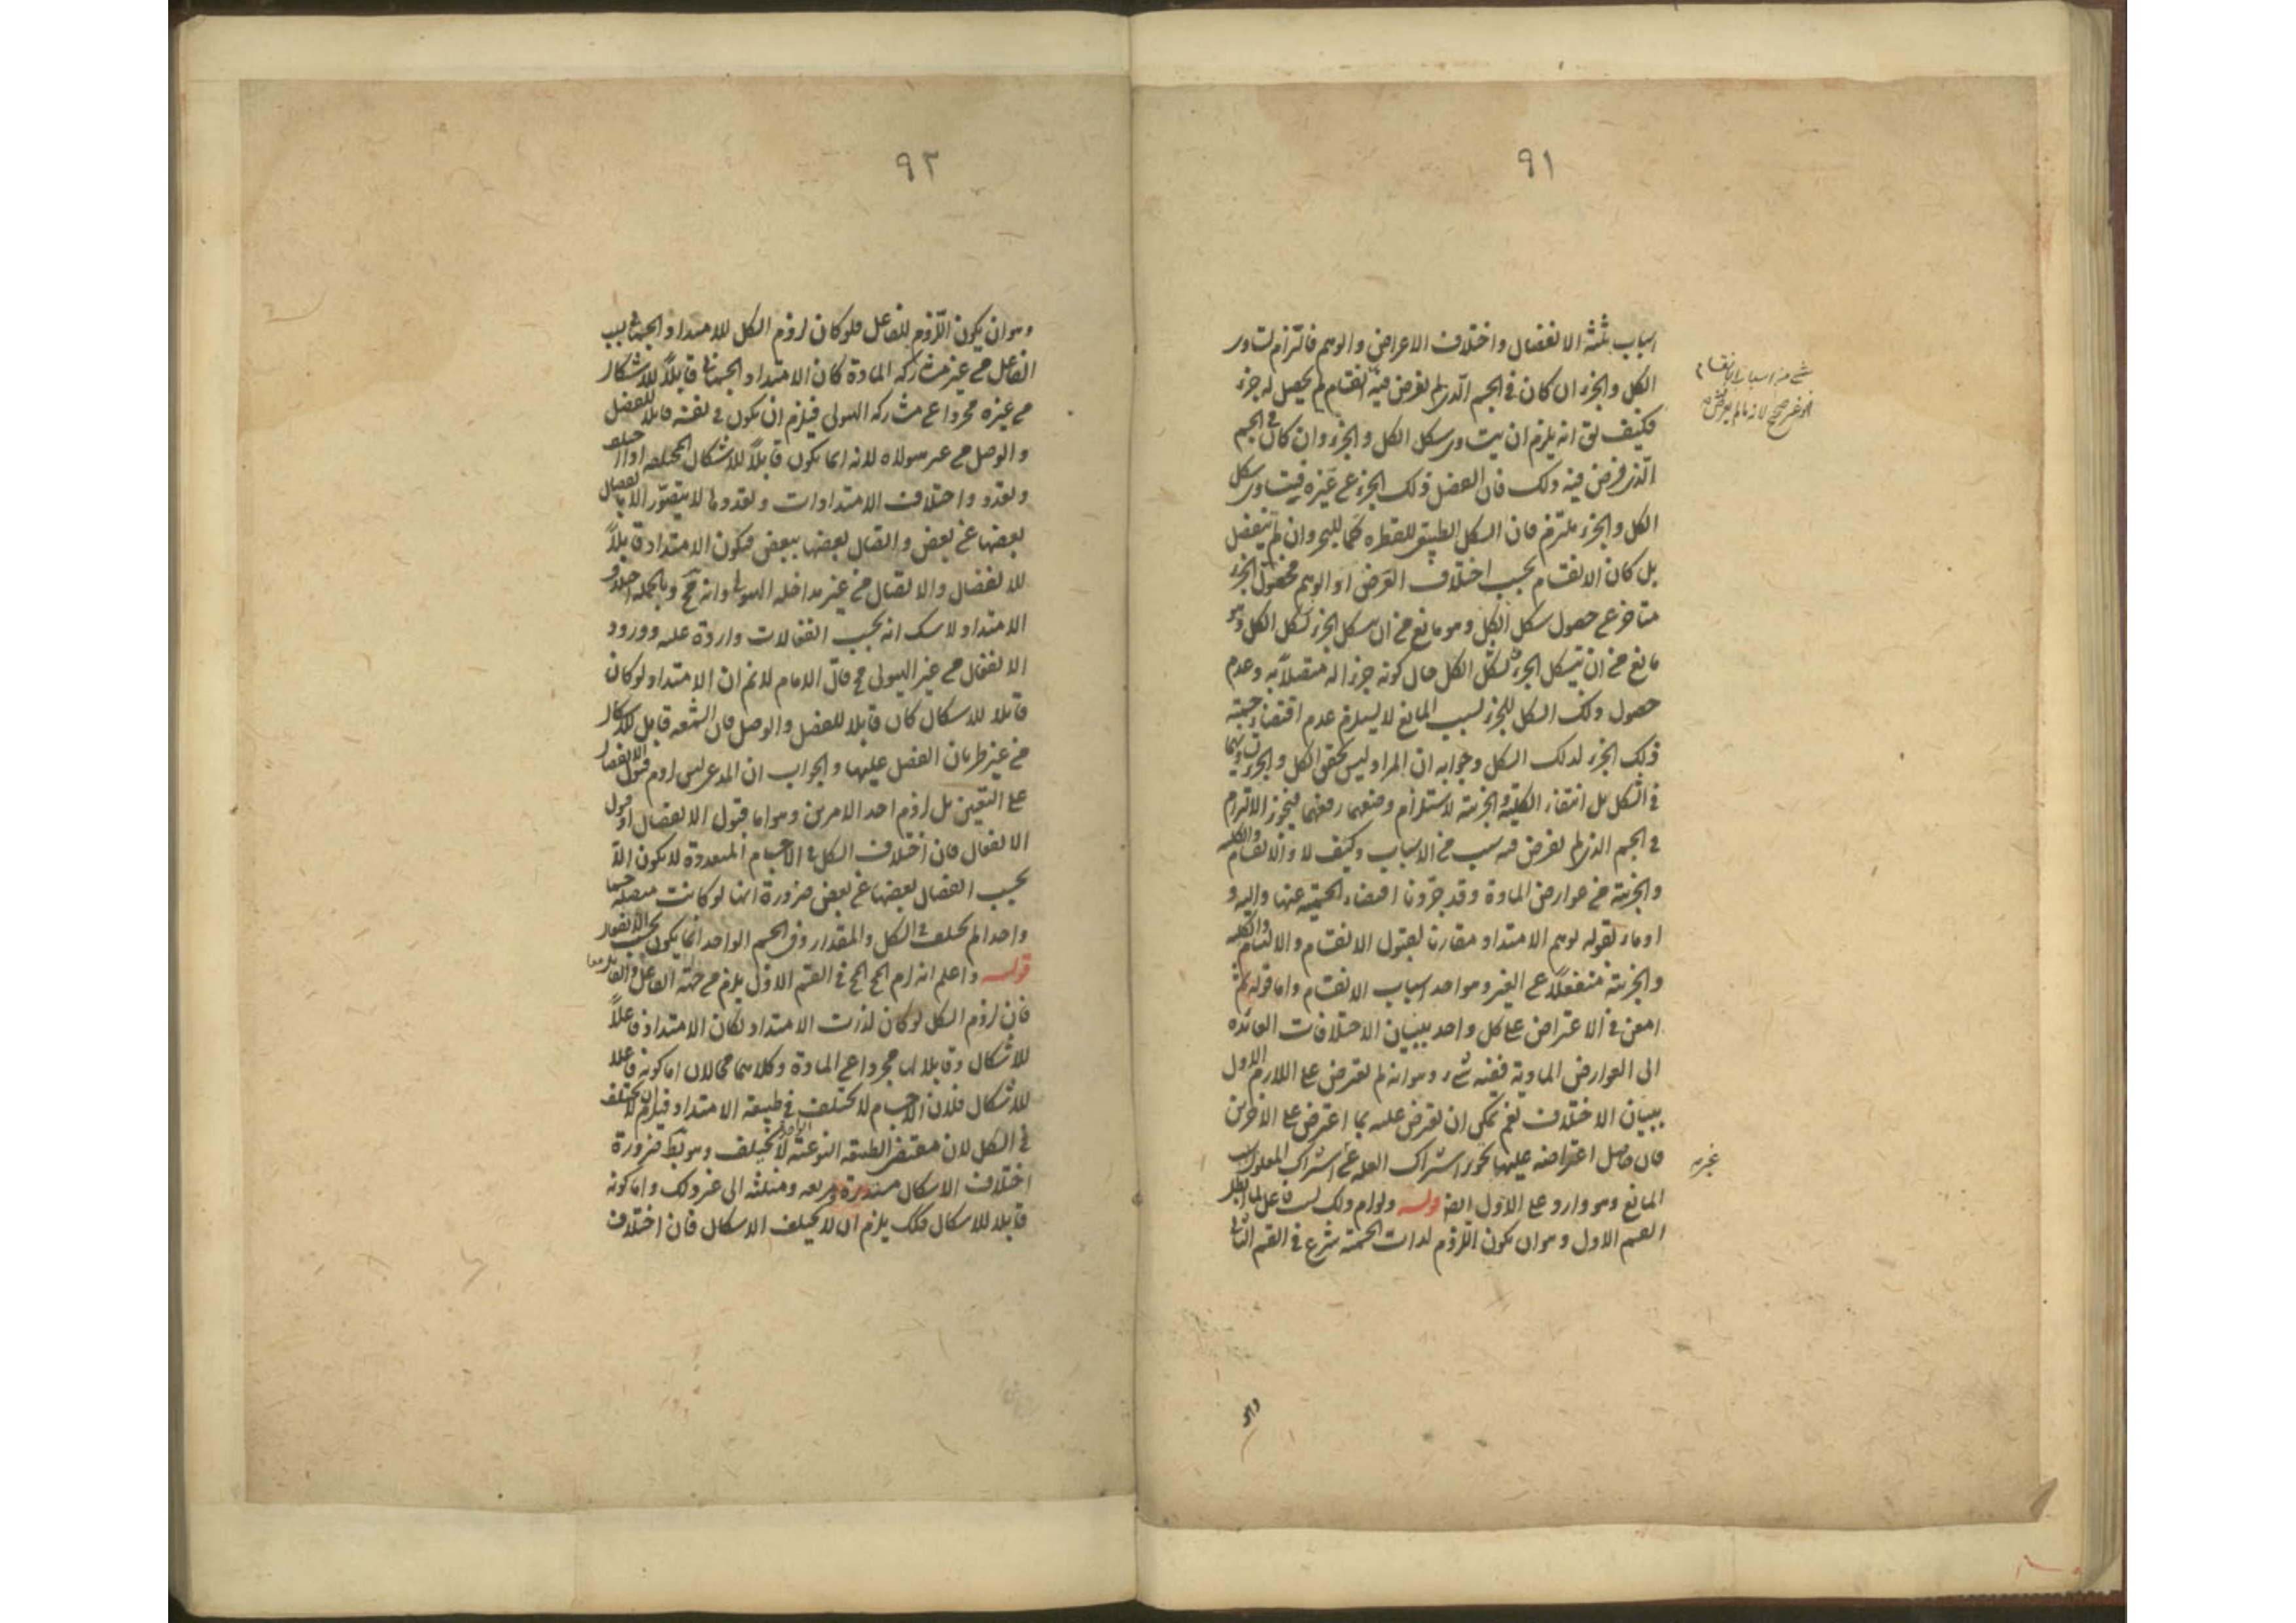 ٩١
اسباب ثلثة الانفصال واختلاف الاعراض والوهم فالتزام تساوى
الكل والجزء ان كان فى الجسم الذى لم يفرض فيه انقسام لم يحصل له جزء
فكيف يق انه يلزم ان يتساوى شكل الكل والجزء وان كان فى الجسم
الذى فرض فيه ذلك فان انفصل ذلك الجزء عن غيره فيتساوى شكل
الكل والجزء ملتزم فان الشكل الطبيعى للقطرة كما للبحر وان لم ينفصل
بل كان الانقسام بحسب اختلاف العرض او الوهم فحصول الجزء
متاخر عن حصول شكل الكل وهو مانع من ان يتشكل الجزء بشكل الكل وهو
مانع من ان يتشكل الجزء بشكل الكل حال كونه جزءا له متصلا به وعدم
حصول ذلك الشكل للجزء بسبب المانع لا يستلزم عدم اقتضاء جسمية
ذلك الجزء لذلك الشكل وجوابه ان المراد ليس تحقق الكل والجزء وتساويهما
فى الشكل بل انتفاء الكلية والجزئية لاستلزام وضعهما رفعهما فيجوز الالتزام
فى الجسم الذى لم يفرض فيه سبب من الاسباب وكيف لا والانقسام والكلية
والجزئية من عوارض المادة وقد جردنا اقتضاء الجسمية عنها واليه
اومأ بقوله توهم الامتداد مقارنا لقبول الانقسام والالتيام والكلية
والجزئية منفعلا عن الغير وهو احد اسباب الانقسام واما قوله ثم
امعن فى الاعتراض على كل واحد ببيان الاختلافات العائدة
الى العوارض المادية ففيه شىء وهو انه لم يعترض على اللازم الاول
ببيان الاختلاف نعم يمكن ان يعترض عليه بما اعترض على الاخرين
فان حاصل اعتراضه عليهما تجويز اشتراك العلة عن اشتراك المعلول بسبب
المانع وهو وارد على الاول ايضا قوله ولو لزم ذلك بسبب فاعل لما ابطل
القسم الاول وهو ان يكون اللزوم لذات الجسمية شرع فى القسم الثانى
٩٢
وهو ان يكون اللزوم للفاعل فلو كان لزوم الشكل للامتداد الجسمانى بسبب
الفاعل من غير مشاركة المادة كان الامتداد الجسمانى قابلا للاشكال
من غيره مجردا عن مشاركة الهيولى فيلزم ان يكون فى نفسه قابلا للفصل
والوصل من غير هيولاه لانه انما يكون قابلا للاشكال المختلفة اذا اختلف
وتعدد واختلاف الامتدادات وتعددها لا يتصور الا بانفصال
بعضها عن بعض واتصال بعضها ببعض فيكون الامتداد قابلا
للانفصال والاتصال من غير مداخلة الهيولى وانه مح وبالجملة اختلاف
الامتداد لا شك انه بحسب انفعالات واردة عليه وورود
الانفعال من غير الهيولى مح قال الامام لا نم ان الامتداد لو كان
قابلا للاشكال كان قابلا للفصل والوصل فان الشمعة قابل للاشكال
من غير طريان الفصل عليها والجواب ان المدعى ليس لزوم قبول الانفصال
على التعيين بل لزوم احد الامرين وهو اما قبول الانفصال او قبول
الانفعال فان اختلاف الشكل فى الاجسام المتعددة لا يكون الا
بحسب انفصال بعضها عن بعض ضرورة انها لو كانت متصلة جسما
واحدا لم تختلف فى الشكل والمقدار وفى الجسم الواحد انما يكون بحسب الانفعال
قوله واعلم انه لزم المح فى القسم الاول يلزم من جهة الفاعل والقابل معا
فان لزوم الشكل لو كان لذات الامتداد لكان الامتداد فاعلا
للاشكال وقابلا لها مجردا عن المادة وكلاهما محالان اما كونه فاعلا
للاشكال فلان الاجسام لا تختلف فى طبيعة الامتداد فيلزم ان لا تختلف
فى الشكل لان مقتضى الطبيعة النوعية الواحدة لا يختلف وهو بط ضرورة
اختلاف الاشكال مستديرة ومربعة ومثلثة الى غير ذلك واما كونه
قابلا للاشكال فلانه يلزم ان لا يختلف الاشكال فان اختلاف